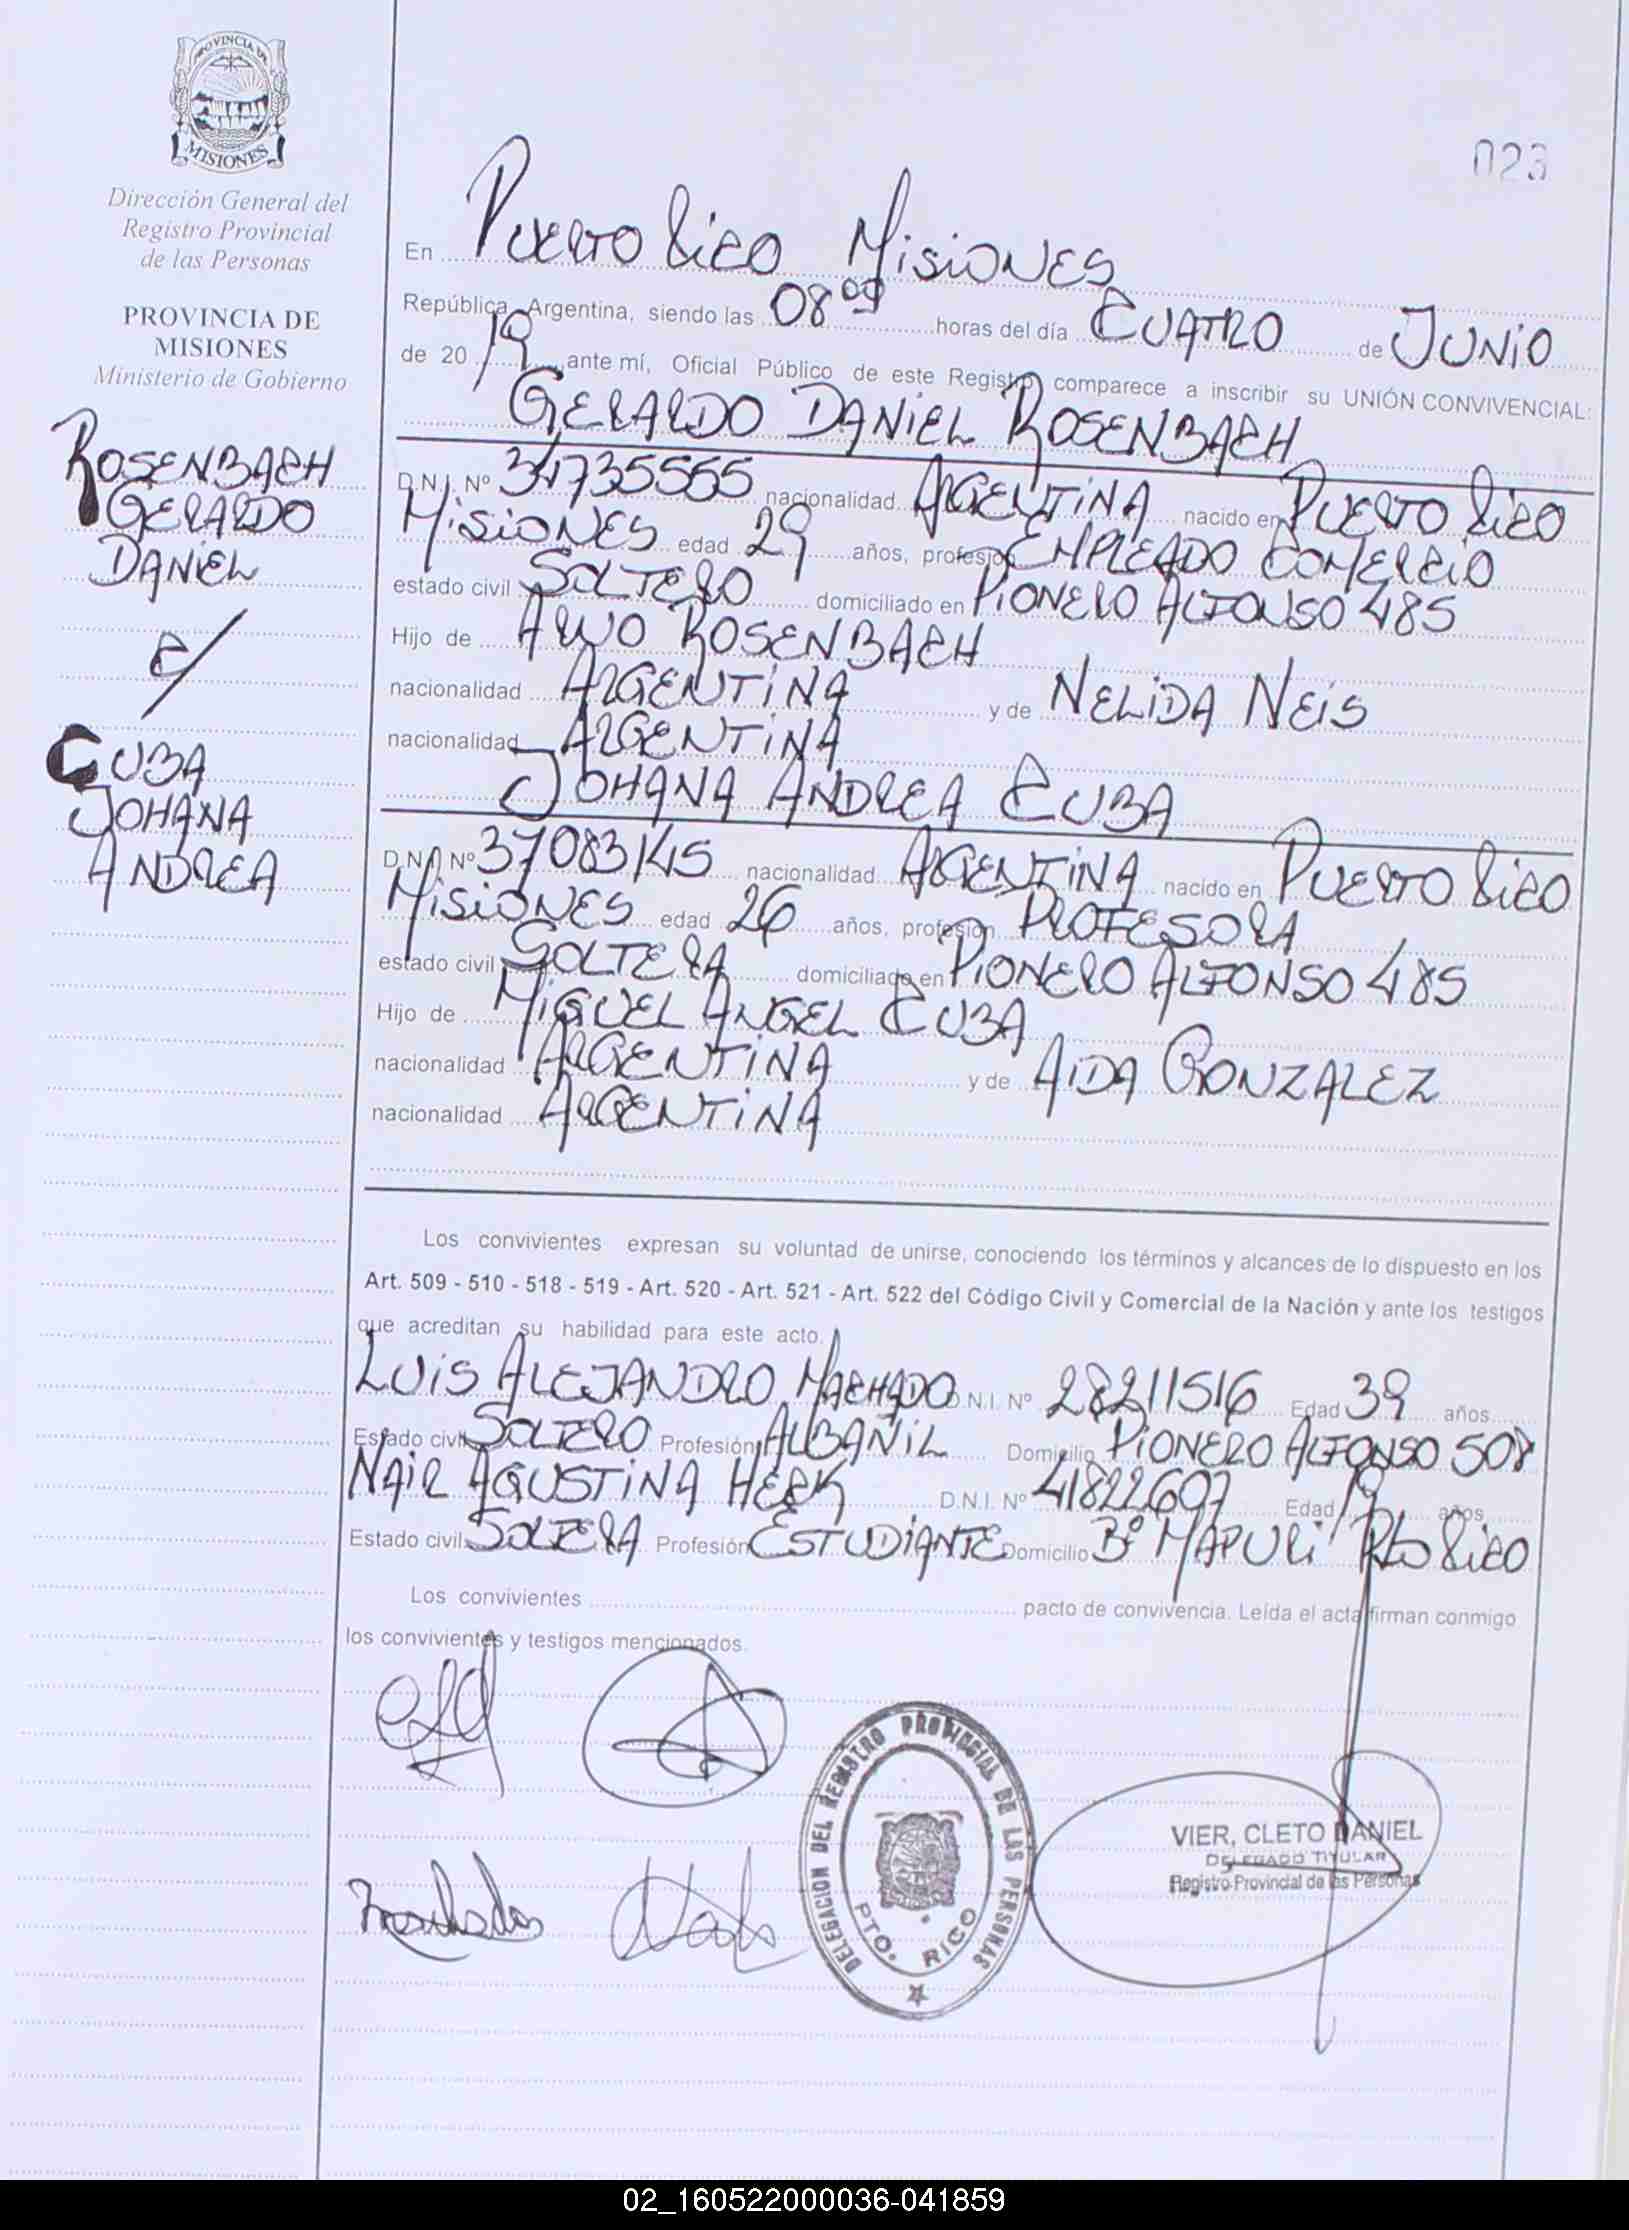 PROVINCIA DE
MISIONES
Dirección General del
Registro Provincial
de las Personas
PROVINCIA DE
MISIONES
Ministerio de Gobierno
ROSENBACH
GERARDO
DANIEL
C/
CUBA
JOHANA
ANDREA
023
En PUERTO RICO MISIONES
República Argentina, siendo las 08 00 horas del día CUATRO de JUNIO
de 2019 ante mí, Oficial Público de este Registro comparece a inscribir su UNIÓN CONVIVENCIAL:
GERARDO DANIEL ROSENBACH
D.N.I. Nº 34735555 nacionalidad ARGENTINA nacido en PUERTO RICO
MISIONES edad 29 años, profesión EMPLEADO COMERCIO
estado civil SOLTERO domiciliado en PIONERO ALFONSO 485
Hijo de ARNO ROSENBACH
nacionalidad ARGENTINA y de NELIDA NEIS
nacionalidad ARGENTINA
JOHANA ANDREA CUBA
D.N.I. Nº 37083145 nacionalidad ARGENTINA nacido en PUERTO RICO
MISIONES edad 26 años, profesión PROFESORA
estado civil SOLTERA domiciliado en PIONERO ALFONSO 485
Hijo de MIGUEL ANGEL CUBA
nacionalidad ARGENTINA y de AIDA GONZALEZ
nacionalidad ARGENTINA
Los convivientes expresan su voluntad de unirse, conociendo los términos y alcances de lo dispuesto en los
Art. 509 - 510 - 518 - 519 - Art. 520 - Art. 521 - Art. 522 del Código Civil y Comercial de la Nación y ante los testigos
que acreditan su habilidad para este acto.
LUIS ALEJANDRO MACHADO D.N.I. Nº 28211516 Edad 39 años
Estado civil SOLTERO Profesión ALBANIL Domicilio PIONERO ALFONSO 508
NAIR AGUSTINA HECK D.N.I. Nº 41822697 Edad 19 años
Estado civil SOLTERA Profesión ESTUDIANTE Domicilio Bº MAPURI Pto RICO
Los convivientes pacto de convivencia. Leída el acta firman conmigo
los convivientes y testigos mencionados.
DELEGACION DEL REGISTRO PROVINCIAL DE LAS PERSONAS
PTO. RICO
VIER, CLETO DANIEL
DELEGADO TITULAR
Registro Provincial de las Personas
02_160522000036-041859